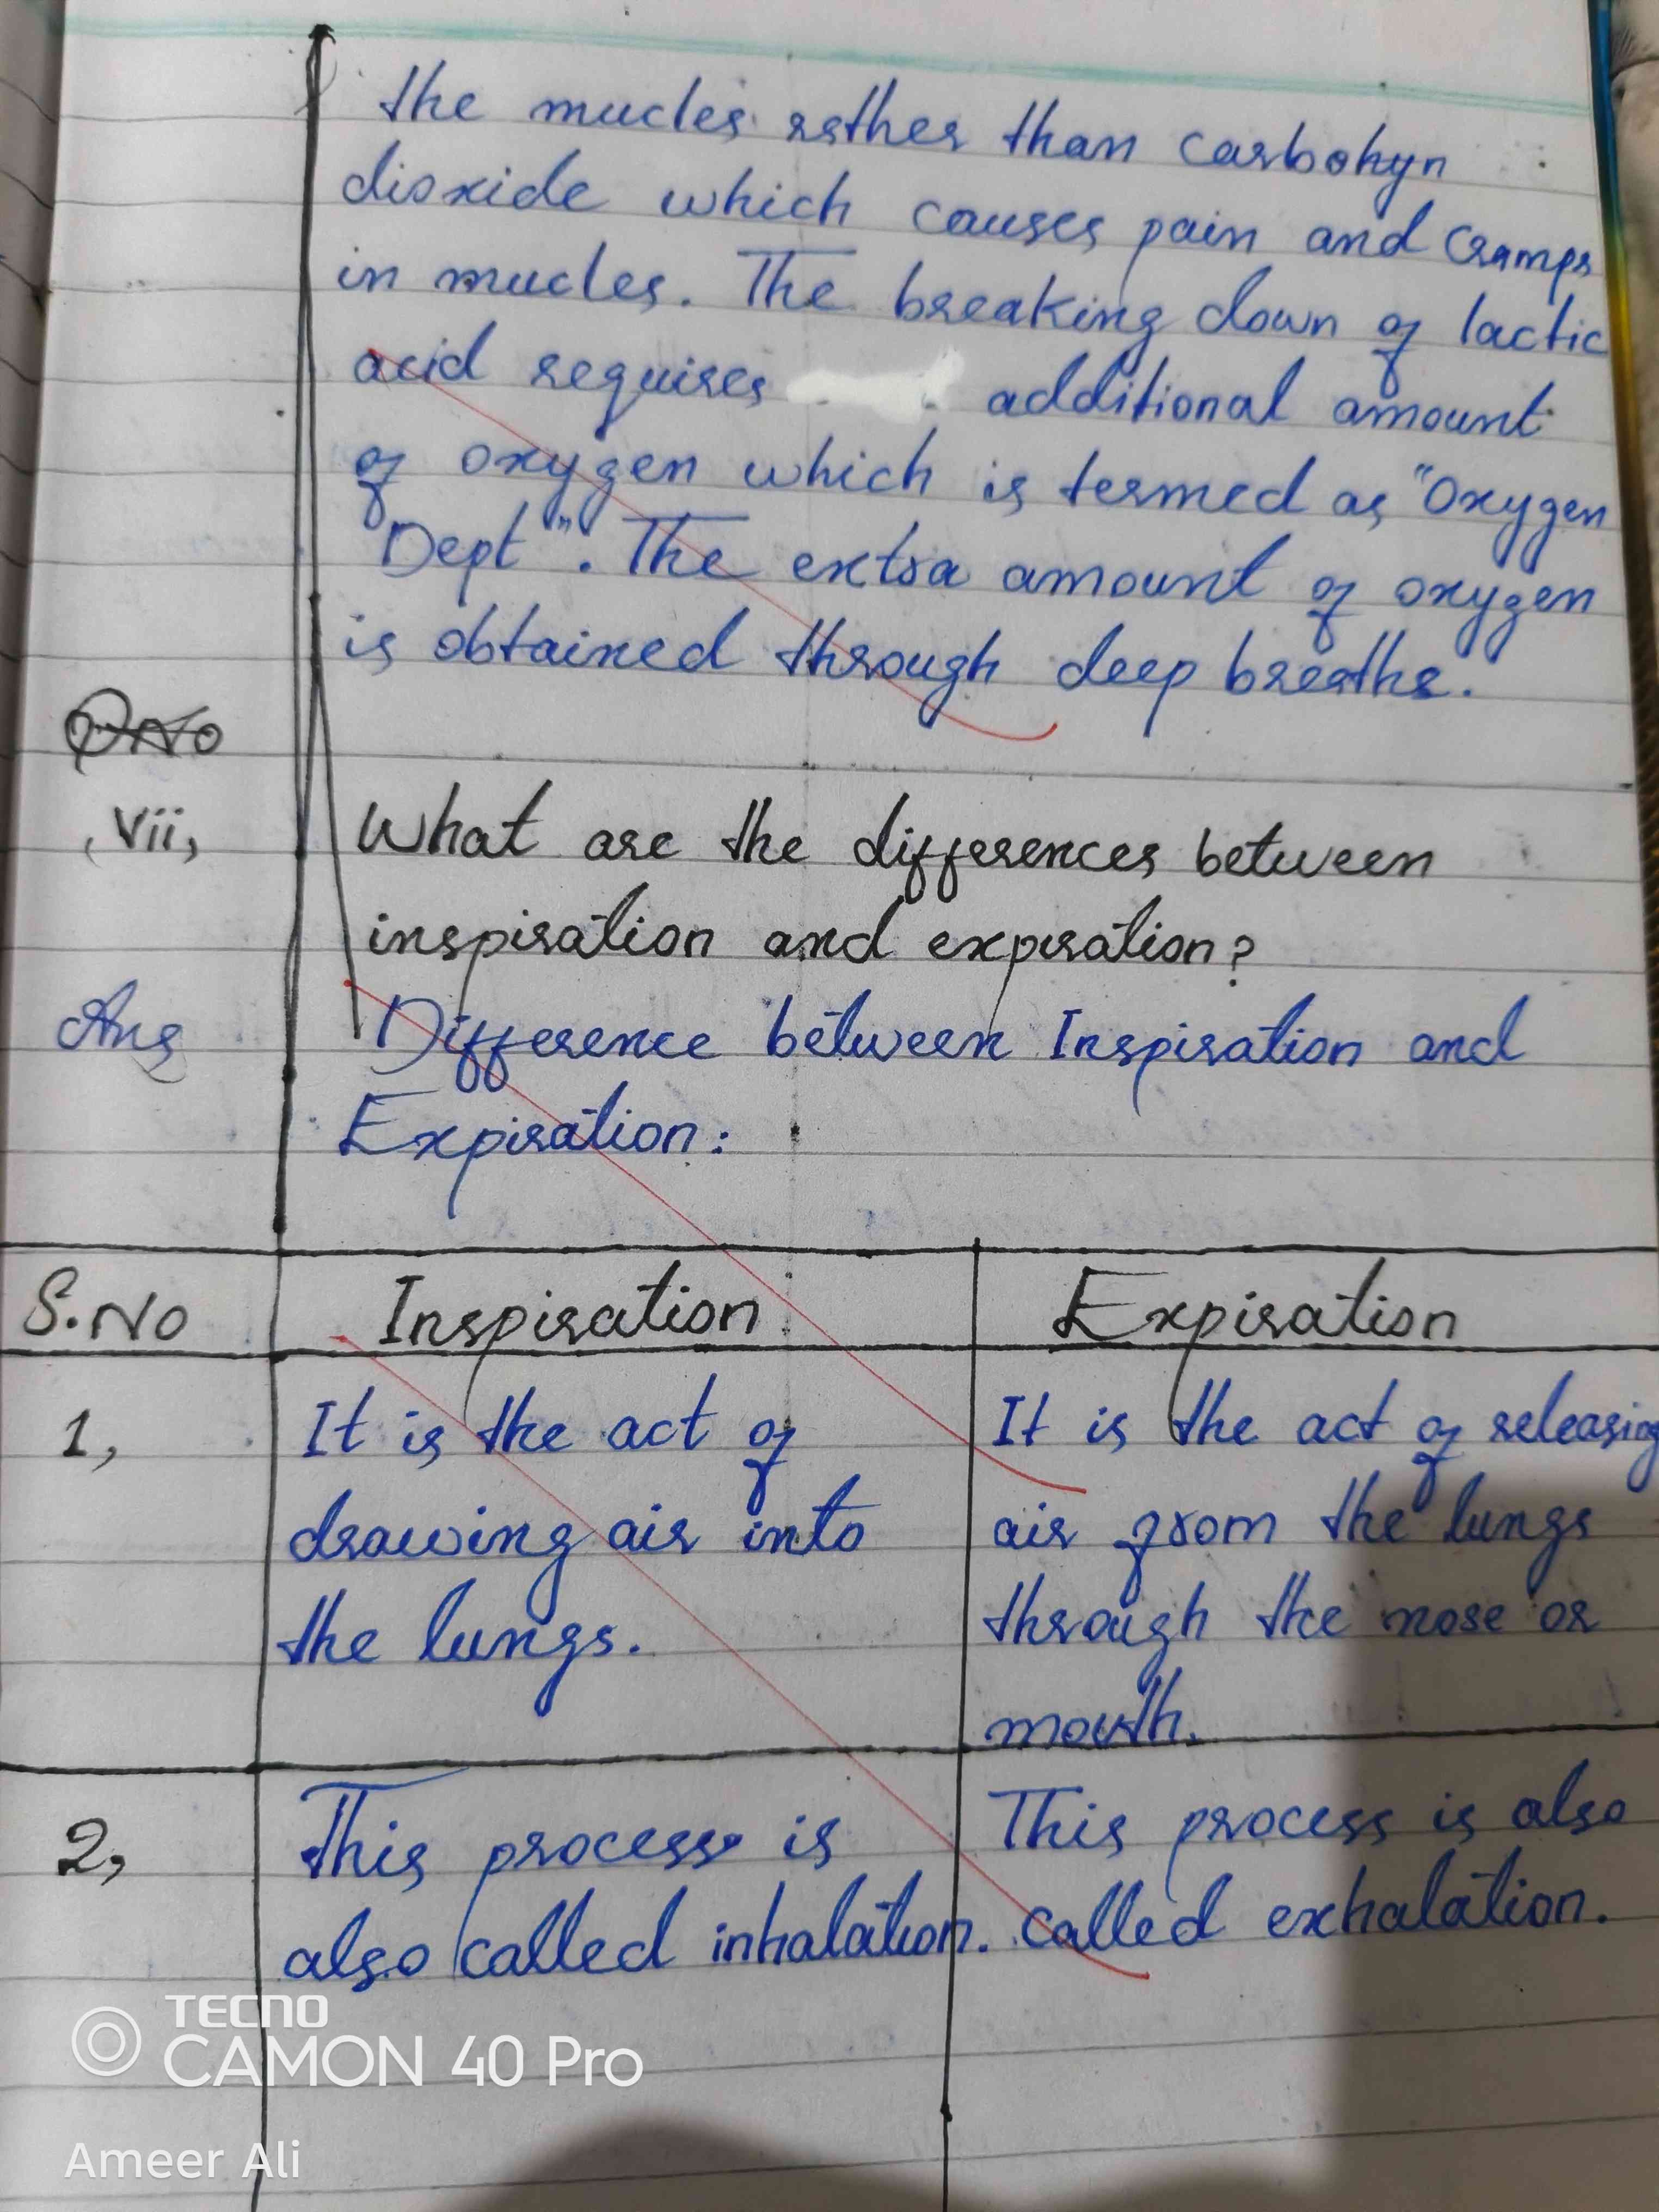 the mucles rather than carbohyn
dioxide which causes pain and cramps
in mucles. The breaking down of lactic
acid requires additional amount
of oxygen which is termed as "Oxygen
Dept". The extra amount of oxygen
is obtained through deep breaths.
QNo
(vii,
What are the differences between
inspiration and expiration?
Ans
Difference between Inspiration and
Expiration:
S.No
Inspiration
Expiration
1,
It is the act of
drawing air into
the lungs.
It is the act of releasing
air from the lungs
through the nose or
mouth.
2,
This process is
also called inhalation.
This process is also
called exhalation.
TECNO
CAMON 40 Pro
Ameer Ali